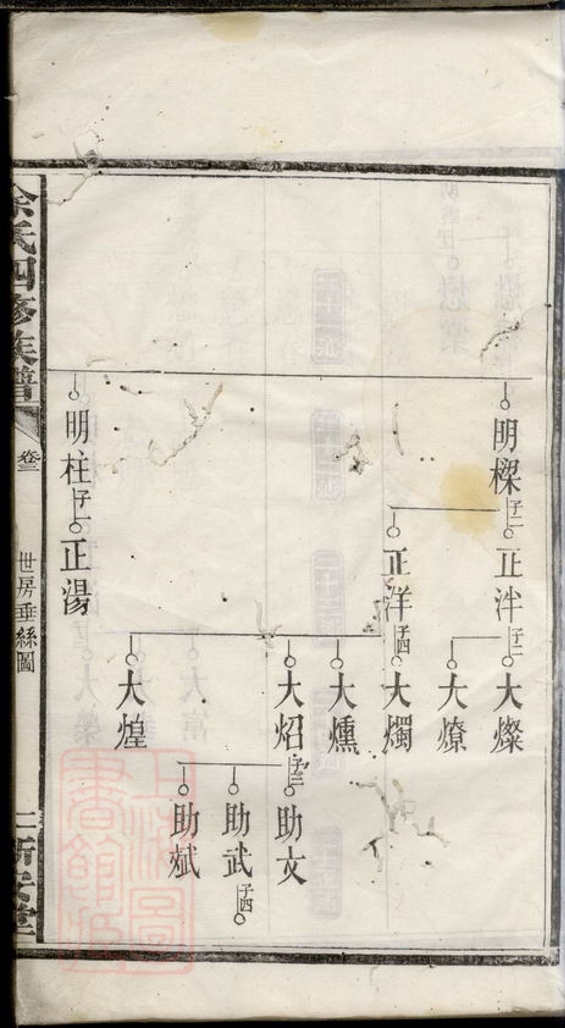 明樑 子二
正泮 子二
大燦
大燎
正洋 子四
大燭
大燻
大炤 子三
助文
助武 子四
助斌
大煌
明柱 子一
正湯
余氏四修族譜
卷三
世房垂絲圖